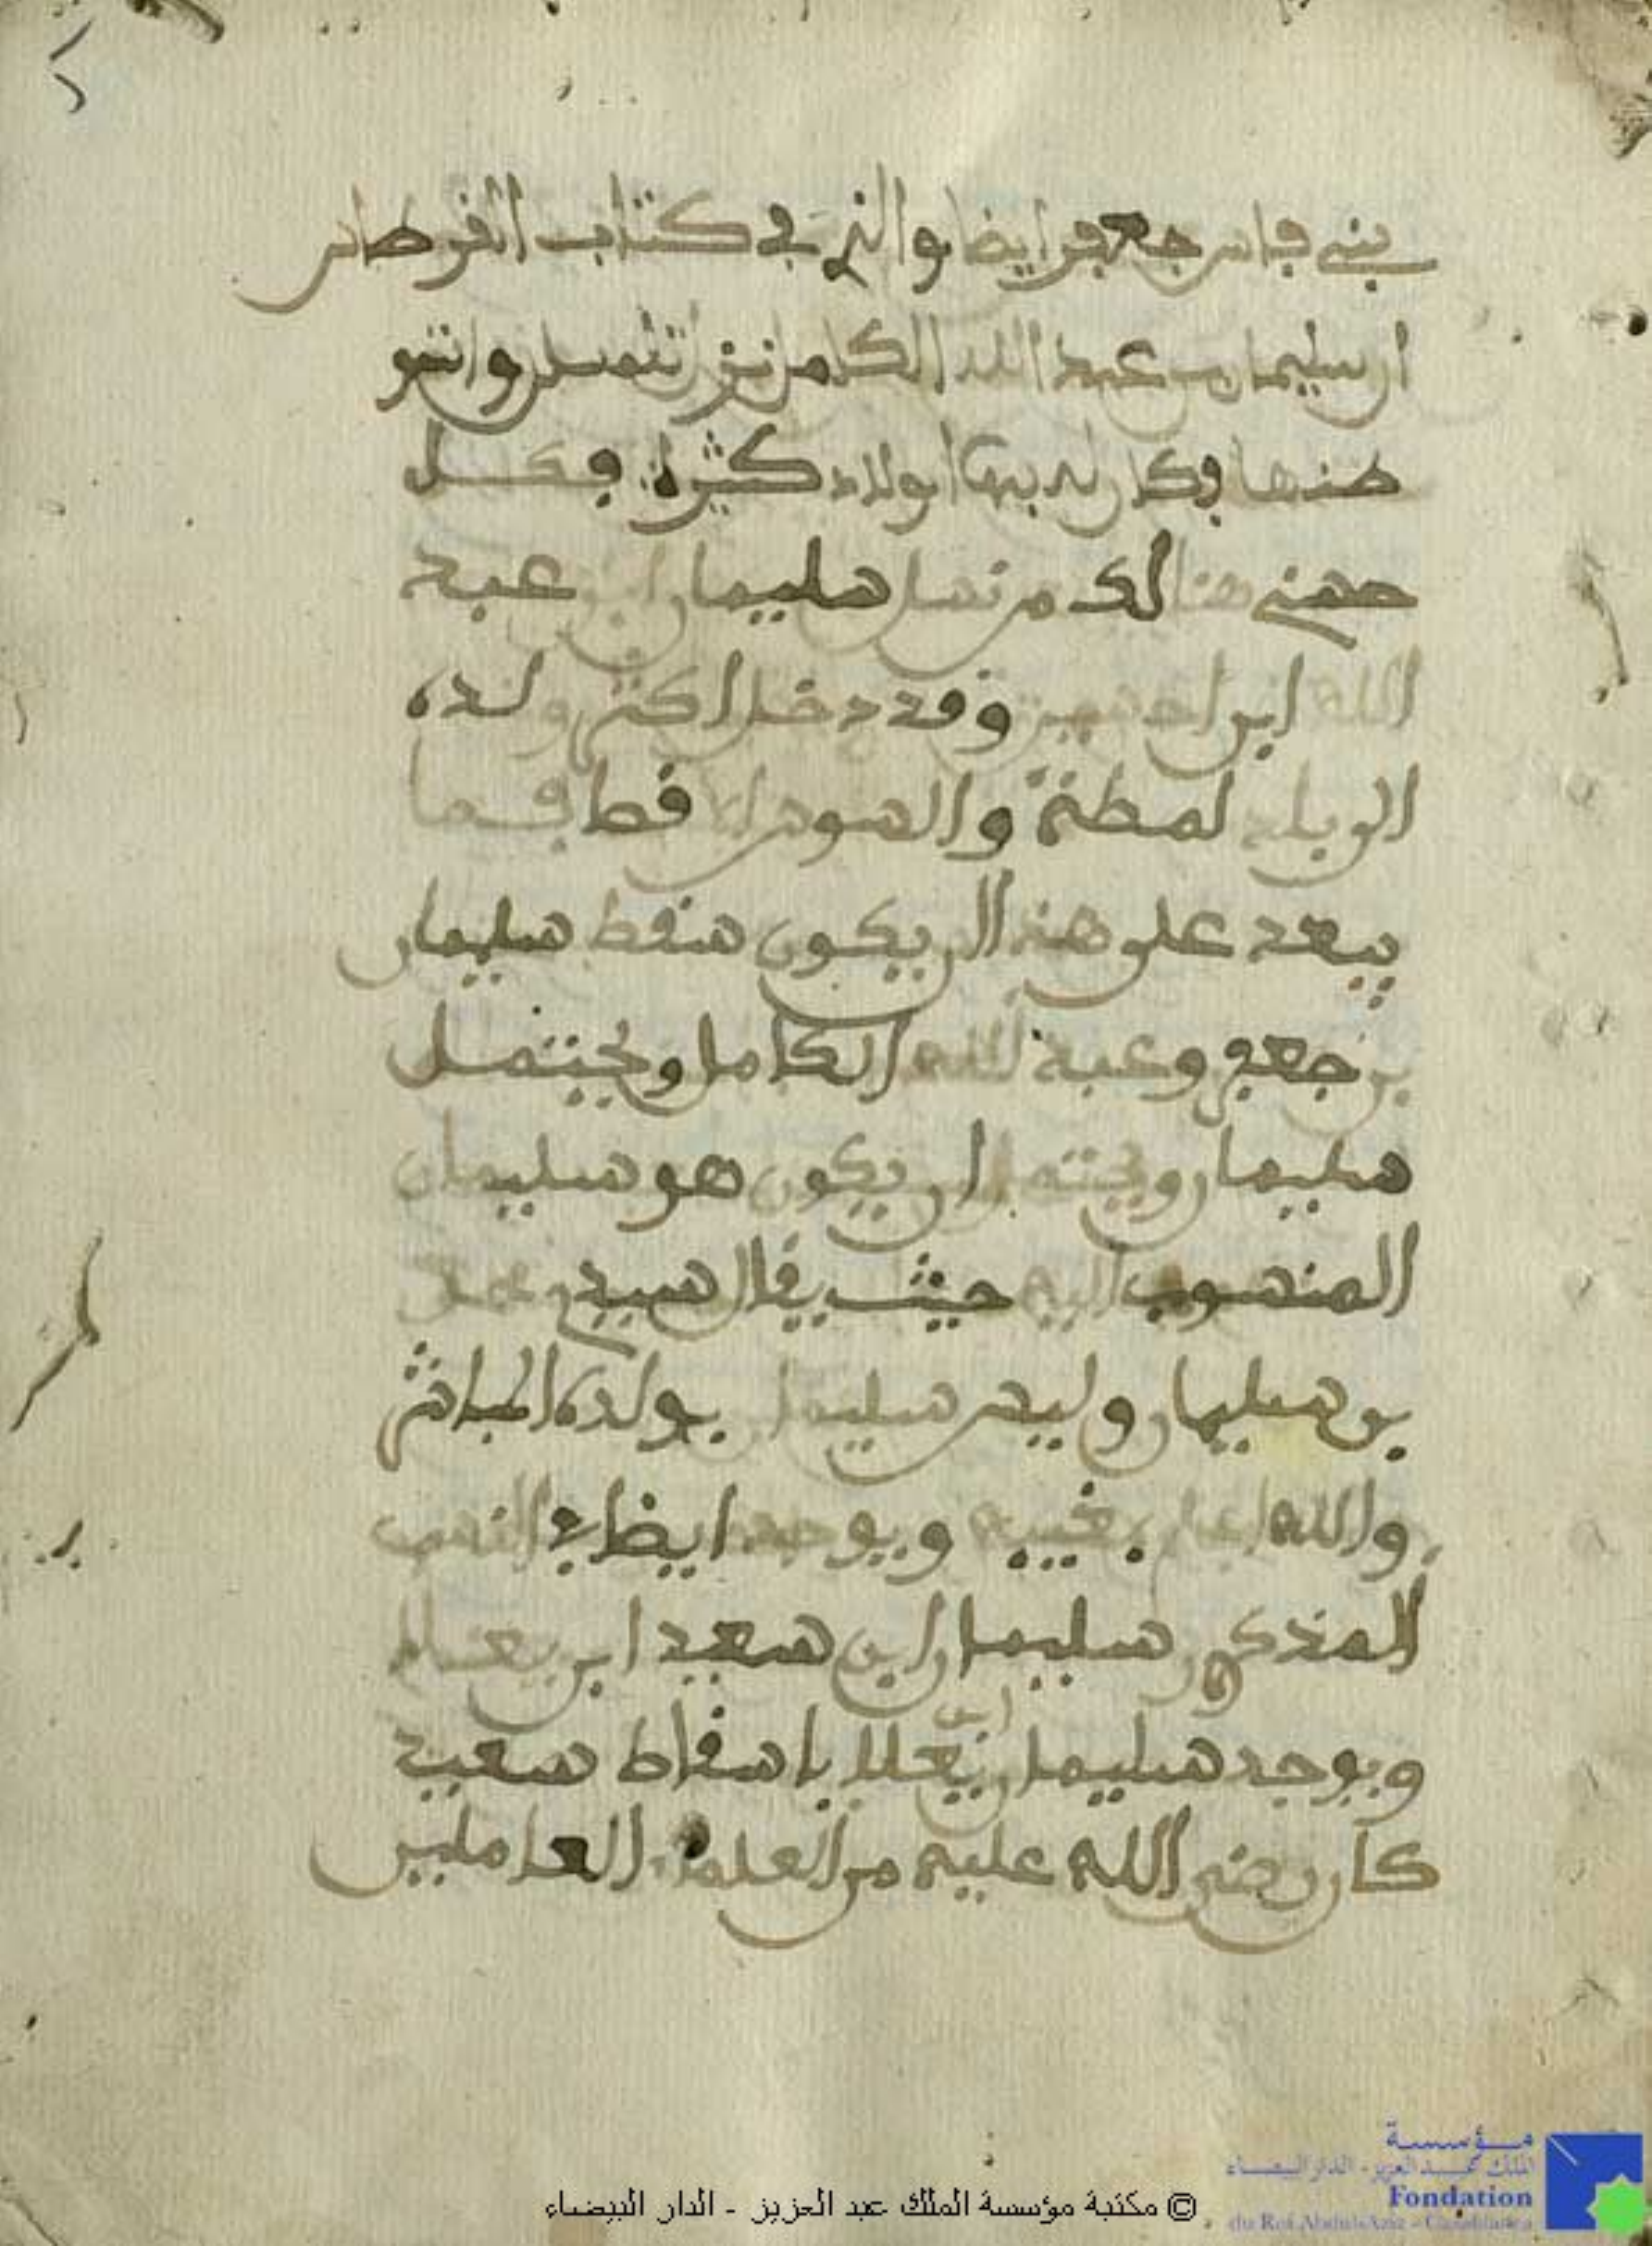 بني فاس جعفر ايضا والذي في كتاب القرطاس
ان سليمان بن عبد الله الكامل نزل تلمسان واستو
طنها وكان له بها اولاد كثيرة فكل
حسني هنالك من نسل سليمان ابن عبد
الله ابن الحسن وقد دخل اكثر ولده
الى بلاد لمطة والسوس الاقصا فما
يبعد على هذا ان يكون سقط سليمان
بن جعفر وعبد الله الكامل ويحتمل
سليمان ويحتمل ان يكون هو سليمان
المنسوب اليه حيث يقال سيدي محمد
بن سليمان وليس سليمان بولده المباشر
والله اعلم بغيبه ويوجد ايضا في النسب
المذكور سليمان ابن سعيد ابن يعلى
ويوجد سليمان ابن يعلى باسقاط سعيد
كان رضي الله عليه من العلماء العاملين
© مكتبة مؤسسة الملك عبد العزيز - الدار البيضاء
مؤسسة
الملك عبد العزيز - الدار البيضاء
Fondation
du Roi Abdul-Aziz - Casablanca